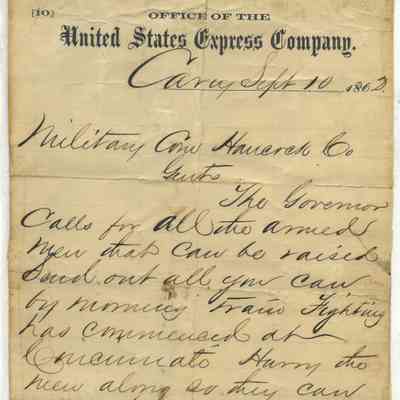 [10]
OFFICE OF THE
United States Express Company.
Carey Sept 10 1862.
Military Com Hancock Co
Gents
The Governor
Calls for all the armed
men that can be raised
Send out all you can
by morning train Fighting
has commenced at
Cincinnati Hurry the
men along so they can